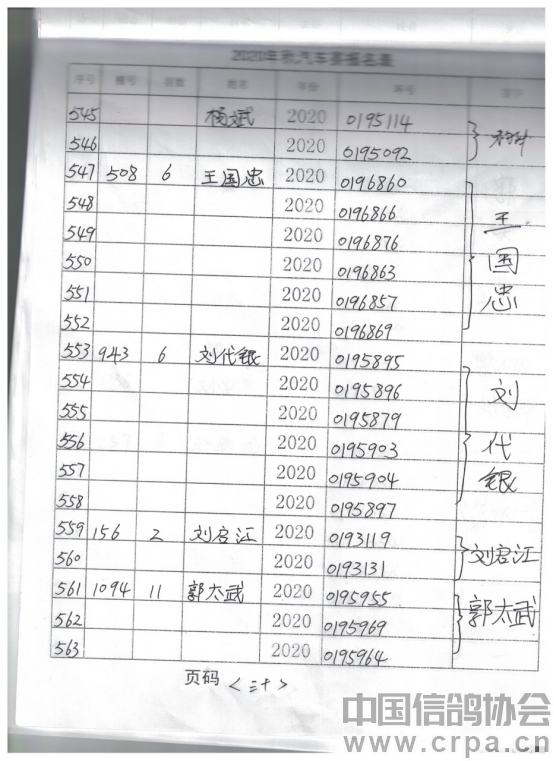 2020年秋汽车赛报名表
序号 棚号 羽数 姓名 年份 环号 签字
545 杨斌 2020 0195114
546 2020 0195092
547 508 6 王国忠 2020 0196860
548 2020 0196866 王
549 2020 0196876
550 2020 0196863 国
551 2020 0196857 忠
552 2020 0196869
553 943 6 刘代银 2020 0195895
554 2020 0195896 刘
555 2020 0195879
556 2020 0195903 代
557 2020 0195904 银
558 2020 0195897
559 156 2 刘启江 2020 0193119 刘启江
560 2020 0193131
561 1094 11 郭太武 2020 0195955 郭太武
562 2020 0195969
563 2020 0195964
页码 <三十>
中国信鸽协会
www.crpa.cn